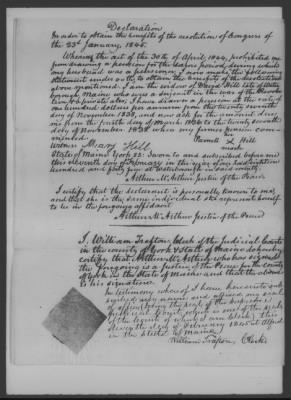 Declaration
In order to obtain the benefit of the resolution of Congress of
the 23d January, 1845.
Whereas the act of the 30th of April, 1844, prohibited me
from drawing a pension for the period, during which
my husband was a pensioner, I now make the following
statement under oath to obtain the benefit of the resolution
above mentioned. I am the widow of Hill late of
Maine who was a in the war of the
I have drawn a pension at the rate of
one hundred dollars per annum from the twenty seventh
day of November 1838, and now ask for the amount due
me from the fourth day of March 1836 to the twenty seventh
day of November 1838 when my former pension com-
menced. Hill
Witness Mary Hill mark
State of Maine York SS: Sworn to and subscribed before me
this eleventh day of February in the year eighteen
hundred and forty five at in said county.
Arthur McArthur Justice of the Peace
I certify that the declarant is personally known to me,
and that she is the same individual she represents herself
to be in the foregoing affidavit.
Arthur McArthur Justice of the Peace
I, William Trafton, Clerk of the Judicial Courts
in the county of York & State of Maine do hereby
certify that Arthur McArthur who has signed
the foregoing is a Justice of the Peace in the County
of York in the State of Maine and that the above
is his signature.
In testimony whereof I have hereunto sub-
scribed my name and affixed my seal
the seal of the
Judicial Court which is one of the courts
of which I am Clerk, this
day of February 1845 at Alfred
in the State of Maine
William Trafton, Clerk